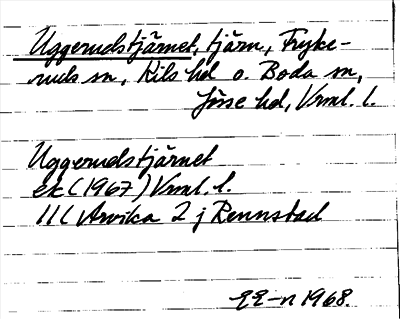 Uggerudstjärnet, tjärn, Fryke-
ruds sn, Kils hd o. Boda sn,
Jösse hd, Vrml. l.
Uggerudstjärnet
ek (1967) Vrml. l.
11C Arvika 2 j Rennstad
1968.